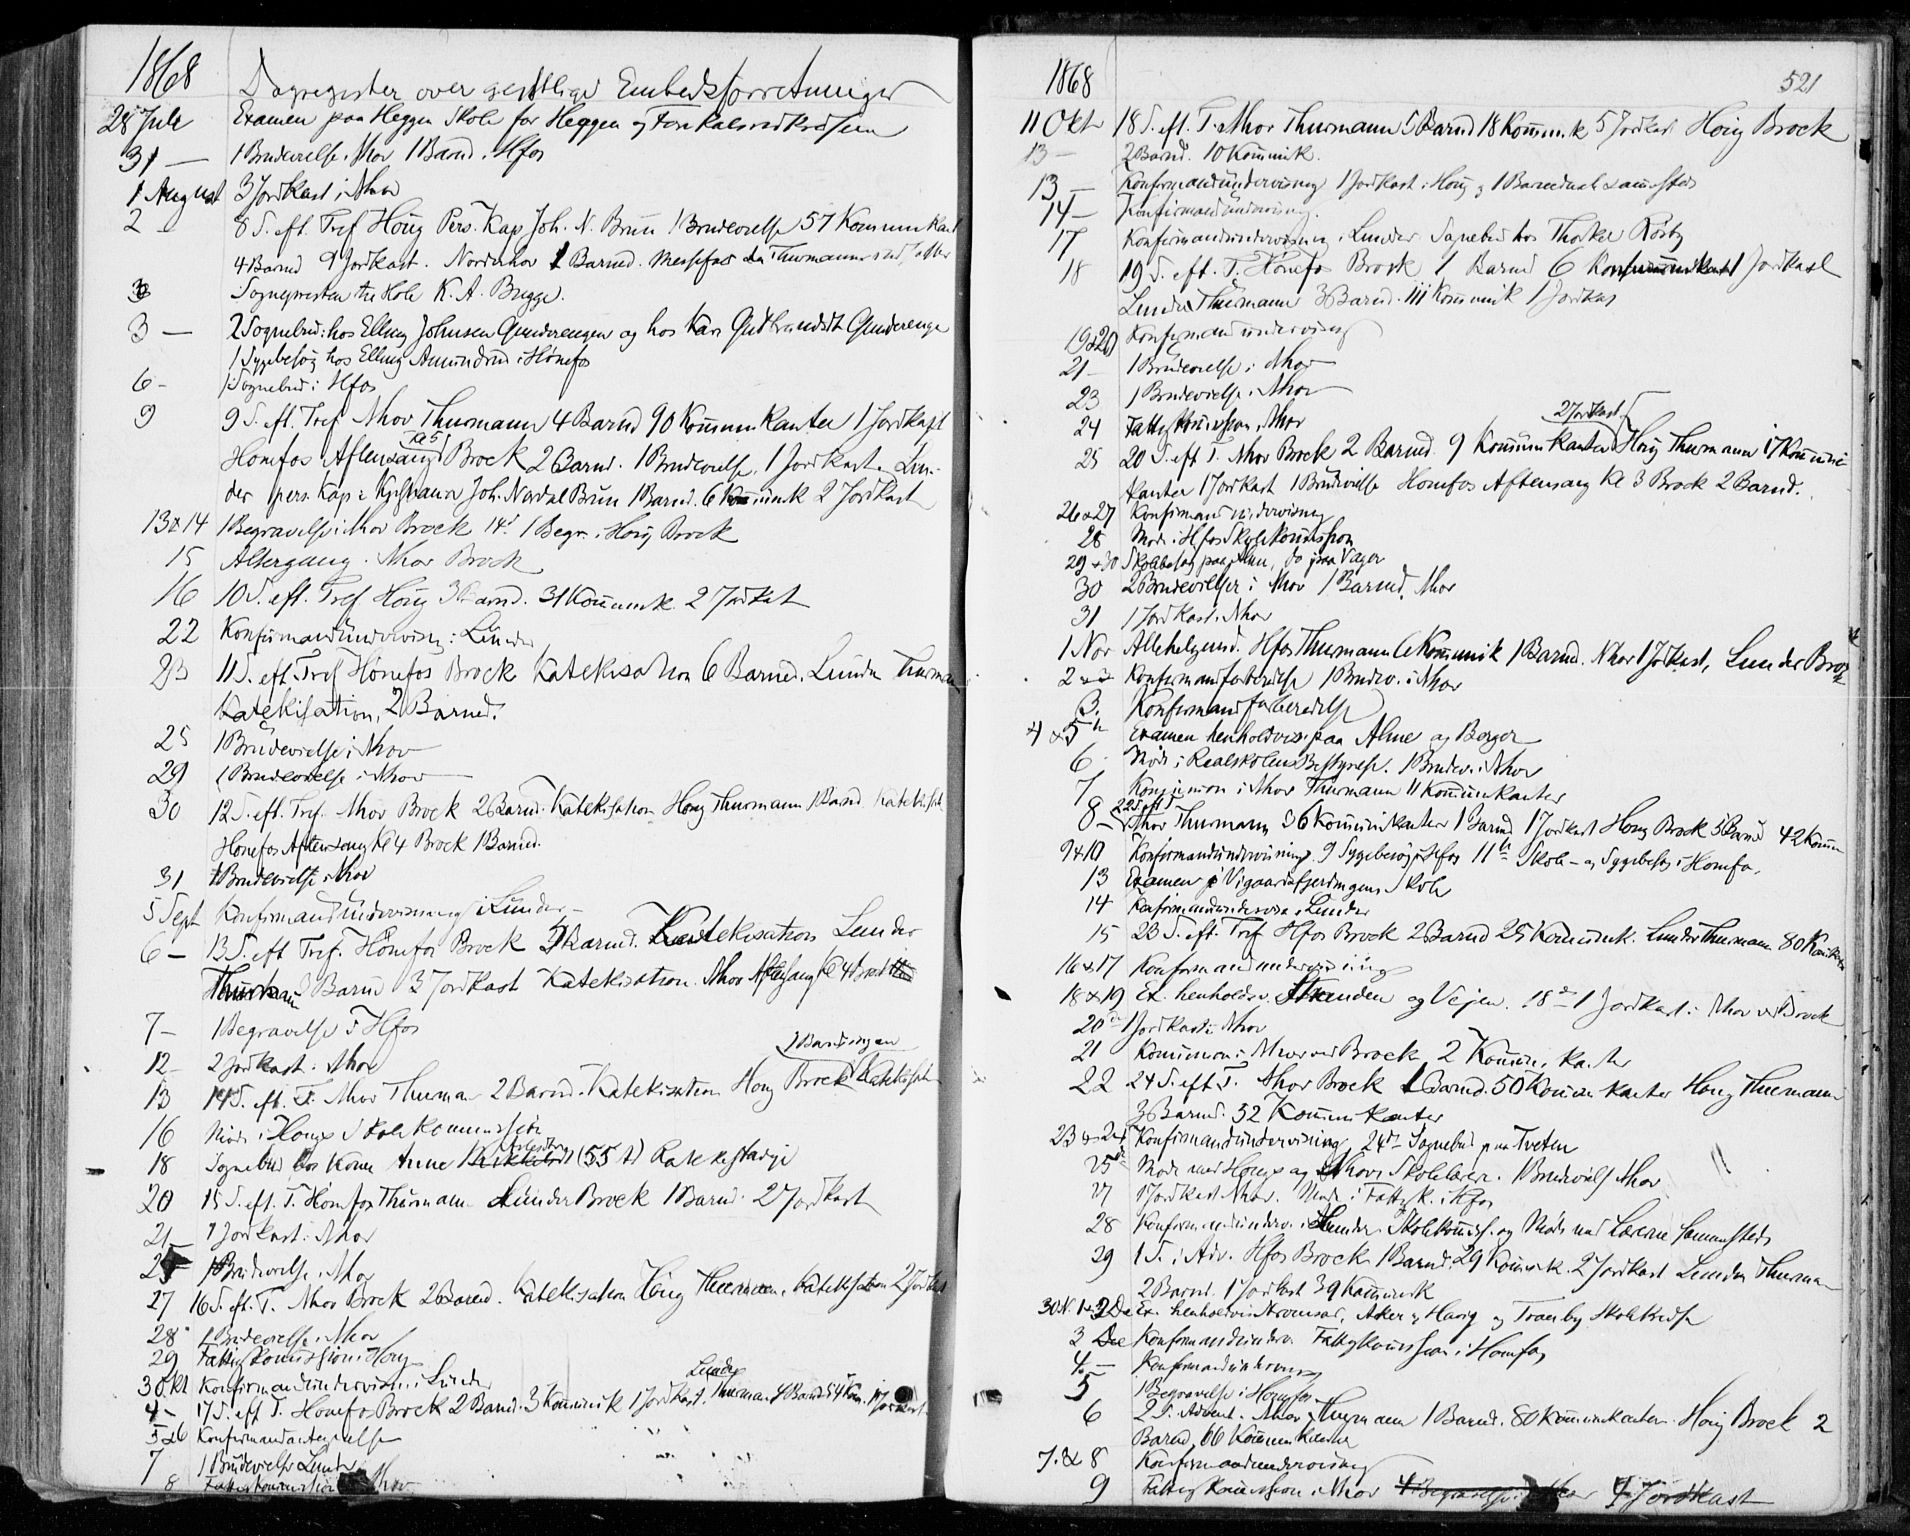 1868
Dagregister over geistlige Embedsforretninger
28 Juli Examen paa Heggen Skole for Heggen og
31 — 1 Brudevielse. Nhov 1 Barnd. Hfos
1 August 3 Jordkast i Nhov
2 8 S. eft. Tref Houg Pers. Kap Joh. N. Brun 1 Brudevielse 57 Kommunikant
4 Barnd 9 Jordkast. Norderhov 1 Barned. Messefald da Thurmann
Sognepresten til Hole K. A. Brugge.
3 — 2 Sognebud: hos Elling Johnsen Gunderengen og hos Kari Gudbrandsdt Gunderenge
1 Sygebesøg hos Elling Amundrud i Hønefos
6 - 1 Sognebud i Hfos
9 9 S. eft. Tref Nhov Thurmann 4 Barnd 90 Kommunikanter 1 Jordkast
Honefos Aftensang Kl 5 Brock 2 Barnd. 1 Brudevielse, 1 Jordkast. Lun-
der pers. Kap: Joh. Nordal Brun 1 Barnd. 6 Kommunik 2 Jordkast
13 & 14 1 Begravelse i Nhov Brock 14d 1 Begr. i Houg Brock
15 Altergang. Nhov Brock
16 10 S. eft. Tref Houg 3 Barnd. 31 Kommunik 2 Jordkast
22 Konfirmandundervisn i Lunder
23 11 S. eft. Tref Honefos Brock Katekisation 6 Barned. Lunder Thurman
Katekisation, 2 Barned.
25 1 Brudevielse i Nhov
29 1 Brudevielse i Nhov
30 12 S. eft. Tref. Nhov Brock 2 Barnd. Katekisation Houg Thurmann 1 Barnd Katekisat
Honefos Aftensang Kl 4 Brock 1 Barned.
31 1 Brudevielse i Nhov
5 Sept Konfirmandundervisning i Lunder
6 — 13 S. eft Tref. Hønefos Brock 5 Barned. Katekisation Lunder
Thurman Barnd 3 Jordkast Katekisation. Nhov Aftensang Kl 4 Brock
7 — 1 Begravelse i Hfos
12 - 2 Jordkast i Nhov
13 14 S. eft. T. Nhov Thurman 2 Barnd. Katekisation Houg Brock Katekisat
16 Møde i Hougs Skolekommission
18 Sognebud hos Kone Anne (55 A)
20 15 S. eft. T. Honefos Thurmann Lunder Brock 1 Barnd. 2 Jordkast
21 — 1 Jordkast i Nhov
25 1 Brudevielse i Nhov
27 16 S. eft. T. Nhov Brock 2 Barned. Katekisation Houg Thurmann, Katekisation 2 Jordkast
28 1 Brudevielse i Nhov
29 Fattigkommission i Houg
3 Okt Konfirmandundervisn. i Lunder
4 - 17 S. eft T. Honefos Brock 2 Barnd. 3 Kommunik 1 Jordkast. Lunder Thurman 4 Barnd 54 Kom.
5 & 6
7 1 Brudevielse Lunder
8 Fattigkommission Nhov
1868 521
11 Okt 18 S. eft. T. Nhov Thurmann 5 Barnd 18 Kommunik 5 Jordkast Houg Brock
13 — 2 Barnd. 10 Kommunik.
13 — Konfirmandundervisning 1 Jordkast i Houg
14 — Konfirmandundervisning.
17 Konfirmandundervisning i Lunder Sognebud hos Thorker Rösby
18 19 S. eft. T. Hønefos Brock 1 Barnd 6 Kommunikant 1 Jordkast
Lunder Thurmann 3 Barnd. Kommunik 1 Jordkast
19 & 20 Konfirmandundervisning
21 — 1 Brudevielse i Nhov
23 1 Brudevielse i Nhov
24 Fattigkommission i Nhov
2 Jordkast
25 20 S. eft T. Nhov Brock 2 Barned. 9 Kommunikanter Houg Thurmann 17 Kommuni-
kanter 1 Jordkast 1 Brudevielse Honefos Aftensang Kl 3 Brock 2 Barnd.
26 & 27 Konfirmandundervisning
28 Møde i Hfos Skolekommission
29 & 30 Skolebesøg paa Alme, do paa Vager
30 2 Brudevielser i Nhov 1 Barned. Nhov
31 1 Jordkast. Nhov
1 Nov Allehelgensd. Hfos Thurmann 6 Kommunik 1 Barnd. Nhov 1 Jordkast, Lunder Brock
2 Konfirmandforberedelse 1 Brudev. i Nhov
3. Konfirmandforberedelse
4 & 5te Examen henholdsvis paa Alme og Berger
6 Møde i Realskolens Bestyrelse. 1 Brudev. i Nhov
7 Kommunion i Nhov Thurmann 11 Kommunikanter
8 — 22 S. eft T Nhov Thurmann 36 Kommunikanter 1 Barnd 1 Jordkast Houg Brock 3 Barnd 42 Komm
9 & 10 Konfirmandundervisning. 9 Sygebesøg i Hfos 11te Skole- og Sygebesøg i Honefos.
13 Examen p Vigaardsfjerdingens Skole
14 Konfirmandundervisn. i Lunder
15 23 S. eft. Tref Hfos Brock 2 Barnd 25 Kommunik. Lunder Thurmann 80 Kommunikanter
16 & 17 Konfirmandundervisning
18 & 19 Ex. henholdsv. Stranden og Vejen. 18de 1 Jordkast i Nhov ved Brock
20de 1 Jordkast i Nhov
21 Kommunion i Nhov ved Brock 2 Kommunikanter
22 24 S. eft T. Nhov Brock 1 Barnd. 50 Kommunikanter Houg Thurmann
3 Barnd. 32 Kommunikanter
23 & 24 Konfirmandundervisning, 24de Sognebud paa Tveten
25de Møde med Hougs og Nhovs Skolelærere. 1 Brudeviels Nhov
27 1 Jordkast Nhov. Møde i Fattigk. i Hfos
28 Konfirmandunderv. i Lunder. Skolekommiss. og Møde med Lærerne sammesteds
29 1 S. i Adv. Hfos Brock 1 Barned. 29 Kommunik. 2 Jordkast Lunder Thurman
2 Barnd. 1 Jordkast 39 Kommunik
30 N. 1 & 2 De Ex. henholdsvis Stromsø, Asker og Haug og Tranby Skolekreds
3 Dec Konfirmandunderv. Fattigkommission i Honefos
4 — Konfirmandundervisning
5 1 Begravelse i Honefos
6 2 S. Advent. Nhov Thurmann 1 Barnd. 80 Kommunikanter. Houg Brock 2
Barnd, 66 Kommunikanter
7. & 8 Konfirmandundervisning
9 Fattigkommission i Nhov 4 Begravelse i Nhov 4 Jordkast